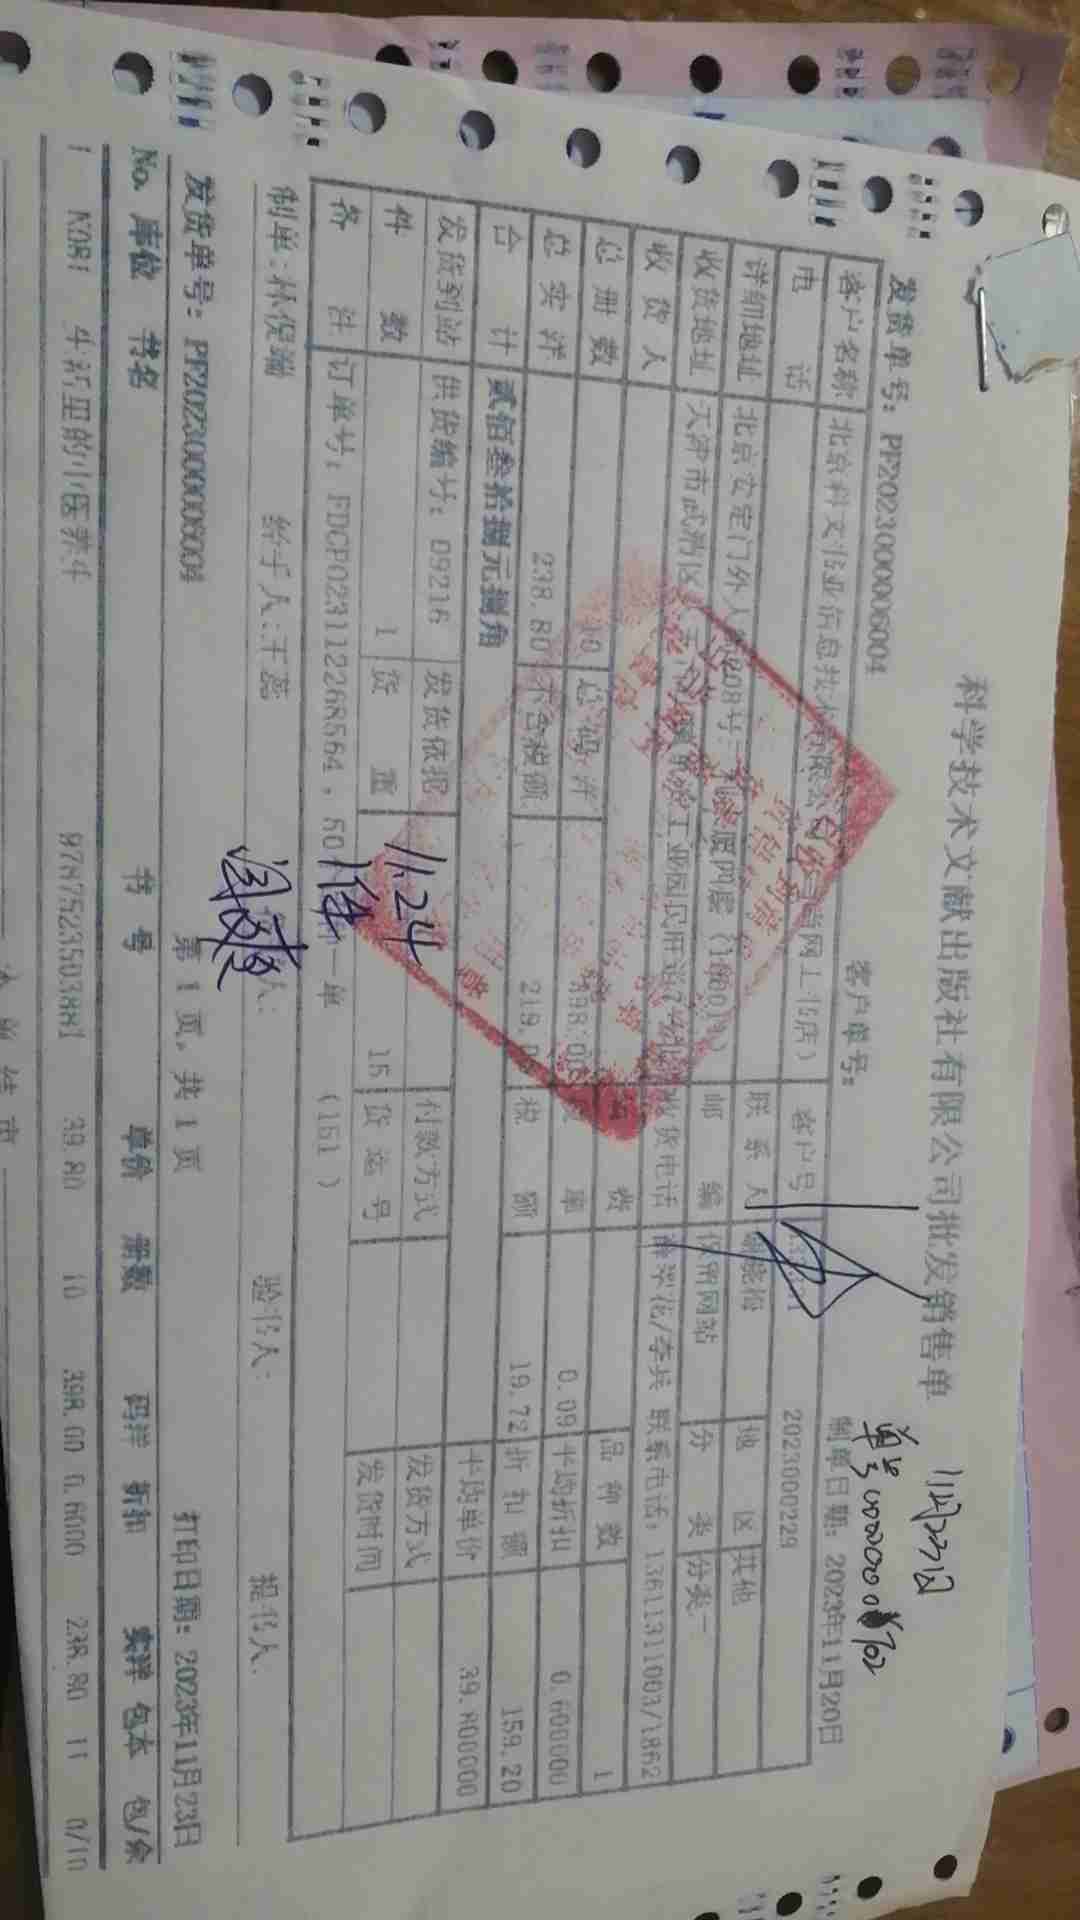 科学技术文献出版社有限公司批发销售单
11月23日
发货单号: PFZ0230000006004 客户单号: 制单日期: 2023年11月20日
客户名称 北京科文书业信息技术有限公司 当网上书店) 客户号 2023000229
电 话 联 系 人 地 区 其他
详细地址 北京安定门外 208号 四层 邮 编 保留网站 分 类 分类一
收货地址 天津市武清区 工业园民用 收货电话 /李兵 联系电话: 13611311003/1862
收 货 人 费 品 种 数 1
总 册 数 10 总 码 洋 398.00 率 0.09 平均折扣 0.600000
总 实 洋 238.80 不含税额 219.0 税 额 19.72 折 扣 额 159.20
合 计 贰佰叁拾捌元捌角 平均单价 39.800000
发货到站 供货编号: 09216 发货依据 付款方式 发货方式
件 数 1 货 重 15 货 运 号 发货时间
11.24
备 注 订单号: 一单 (151 )
1件
制单: 经手人:王蕊 验书人: 提书人:
发货单号: PFZ0230000006004 第 1 页, 共 1 页 打印日期: 2023年11月23日
No. 库位 书名 书 号 单价 册数 码洋 折扣 实洋 包本 包/余
1 9787523503881 39.80 10 398.00 0.6000 238.80 11 0/10